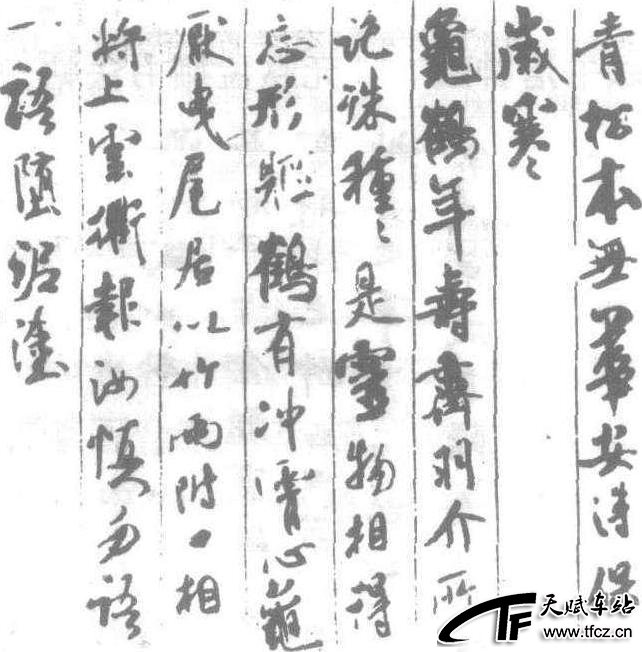 青松本無華安得保
歲寒
龜鶴年壽齊羽介所
託殊種〻是靈物相得
忘形軀鶴有冲霄心龜
厭曳尾居以竹兩附口相
將上雲衢報汝慎勿語
一語墮泥塗
天赋车站
www.tfcz.cn